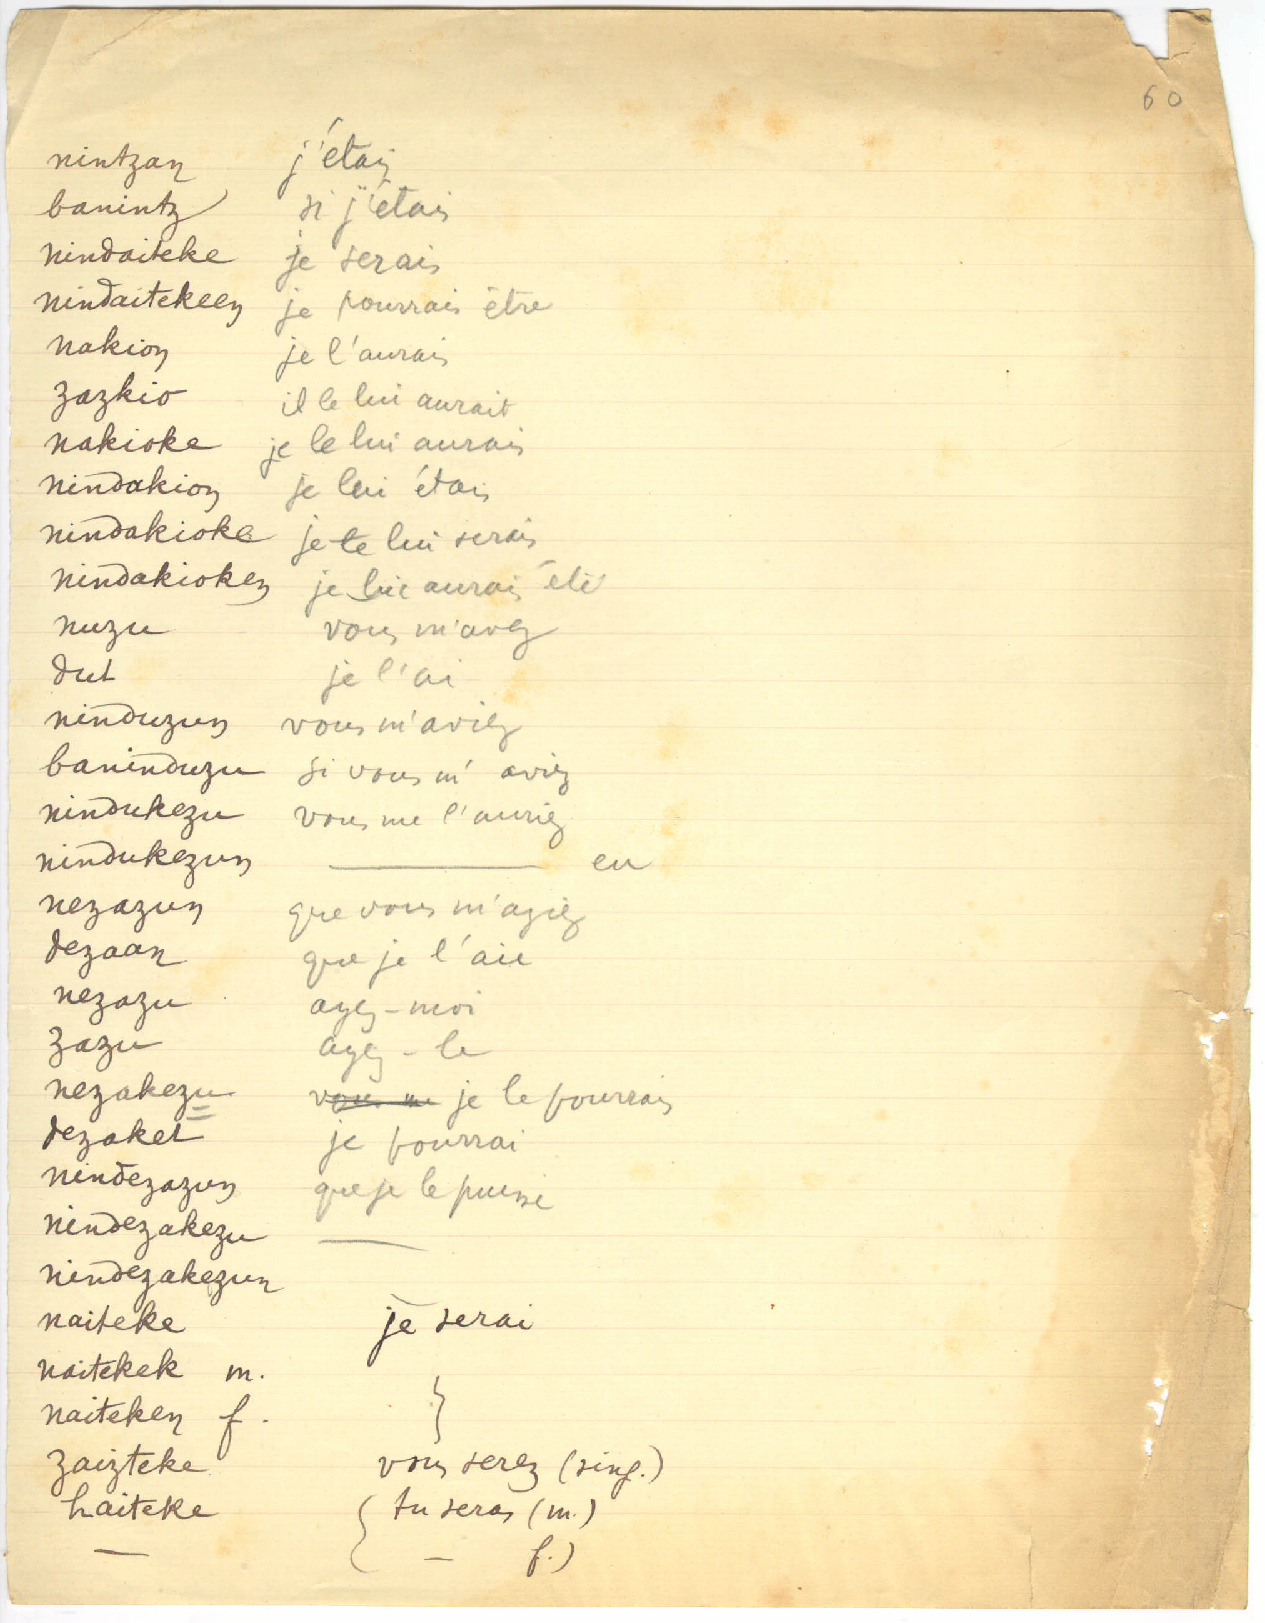 60
nintzan j'étais
banintz si j'étais
nindaiteke je serais
nindaitekeen je pourrais être
nakion je l'aurais
zazkio il le lui aurait
nakioke je le lui aurais
nindakion je lui étais
nindakioke je te lui serais
nindakioken je lui aurais été
nuzu vous m'avez
dut je l'ai
ninduzun vous m'aviez
baninduzu si vous m'aviez
nindukezu vous me l'auriez
nindukezun ——— eu
nezazun que vous m'ayiez
dezaan que je l'aie
nezazu ayez-moi
zazu ayez-le
nezakezu vous me je le pourrais
dezaket je pourrai
nindezazun que je le puisse
nindezakezu ———
nindezakezun
naiteke je serai
naitekek m.
naiteken f. }
zaizteke vous serez (sing.)
haiteke { tu seras (m.)
— — f.)